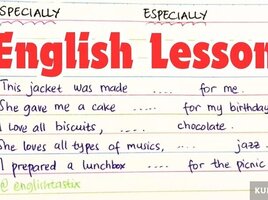 SPECIALLY ESPECIALLY
English Lesson
This jacket was made .... for me.
She gave me a cake .... for my birthday
I love all biscuits, .... chocolate.
She loves all types of musics, .... jazz.
I prepared a lunchbox .... for the picnic
@englishtastix